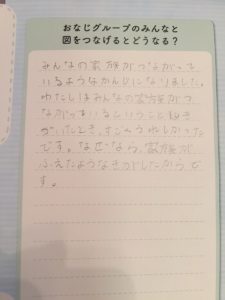 おなじグループのみんなと
図をつなげるとどうなる？
みんなの家族がつながって
いるようなかんじになりました。
わたしはみんなの家族がつ
ながっているということに気
がついたとき、すごくうれしかった
です。なぜなら、家族が
ふえたようなきがしたからで
す。